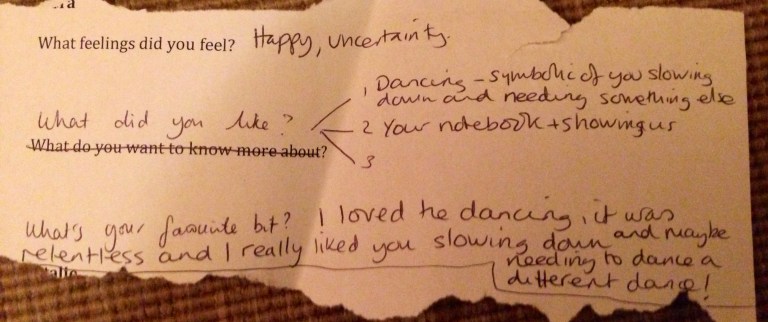 What feelings did you feel? Happy, uncertainty.
1 Dancing – symbolic of you slowing
down and needing something else
What did you like?
2 Your notebook + showing us
What do you want to know more about?
3
What's your favourite bit? I loved the dancing, it was
relentless and I really liked you slowing down and maybe
needing to dance a
different dance!